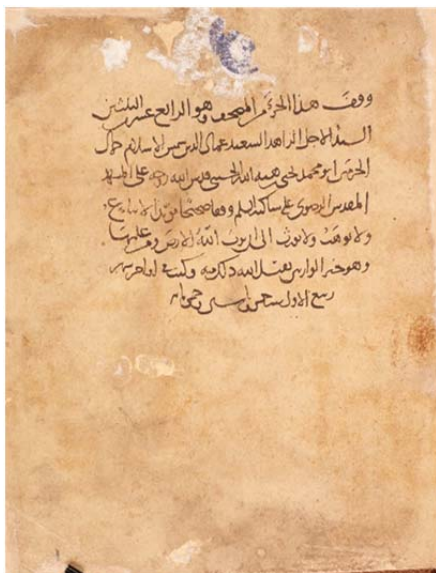 وقف هذا الجزء من المصحف وهو الرابع عشر من الثلثين
السيد الاجل الزاهد السعيد عماد الدين شمس الاسلام جمال
الحرمين ابو محمد يحيى بن هبة الله الحسيني قدس الله روحه على المشهد
المقدس الرضوي على ساكنه السلم وقفا صحيحا مؤبدا لا يباع
ولا يوهب ولا يورث الى ان يرث الله الارض ومن عليها
وهو خير الوارثين تقبل الله ذلك منه وكتب في اواخر شهر
ربيع الاول سنة خمس